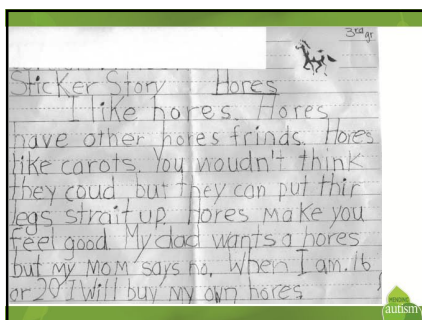 3rd gr
Sticker Story Hores
I like hores. Hores
have other hores frinds. Hores
like carots. You woudn't think
they coud but they can put thir
legs strait up. Hores make you
feel good. My dad wants a hores
but my mom says no. When I am 16
or 20 I will buy my own hores
autism